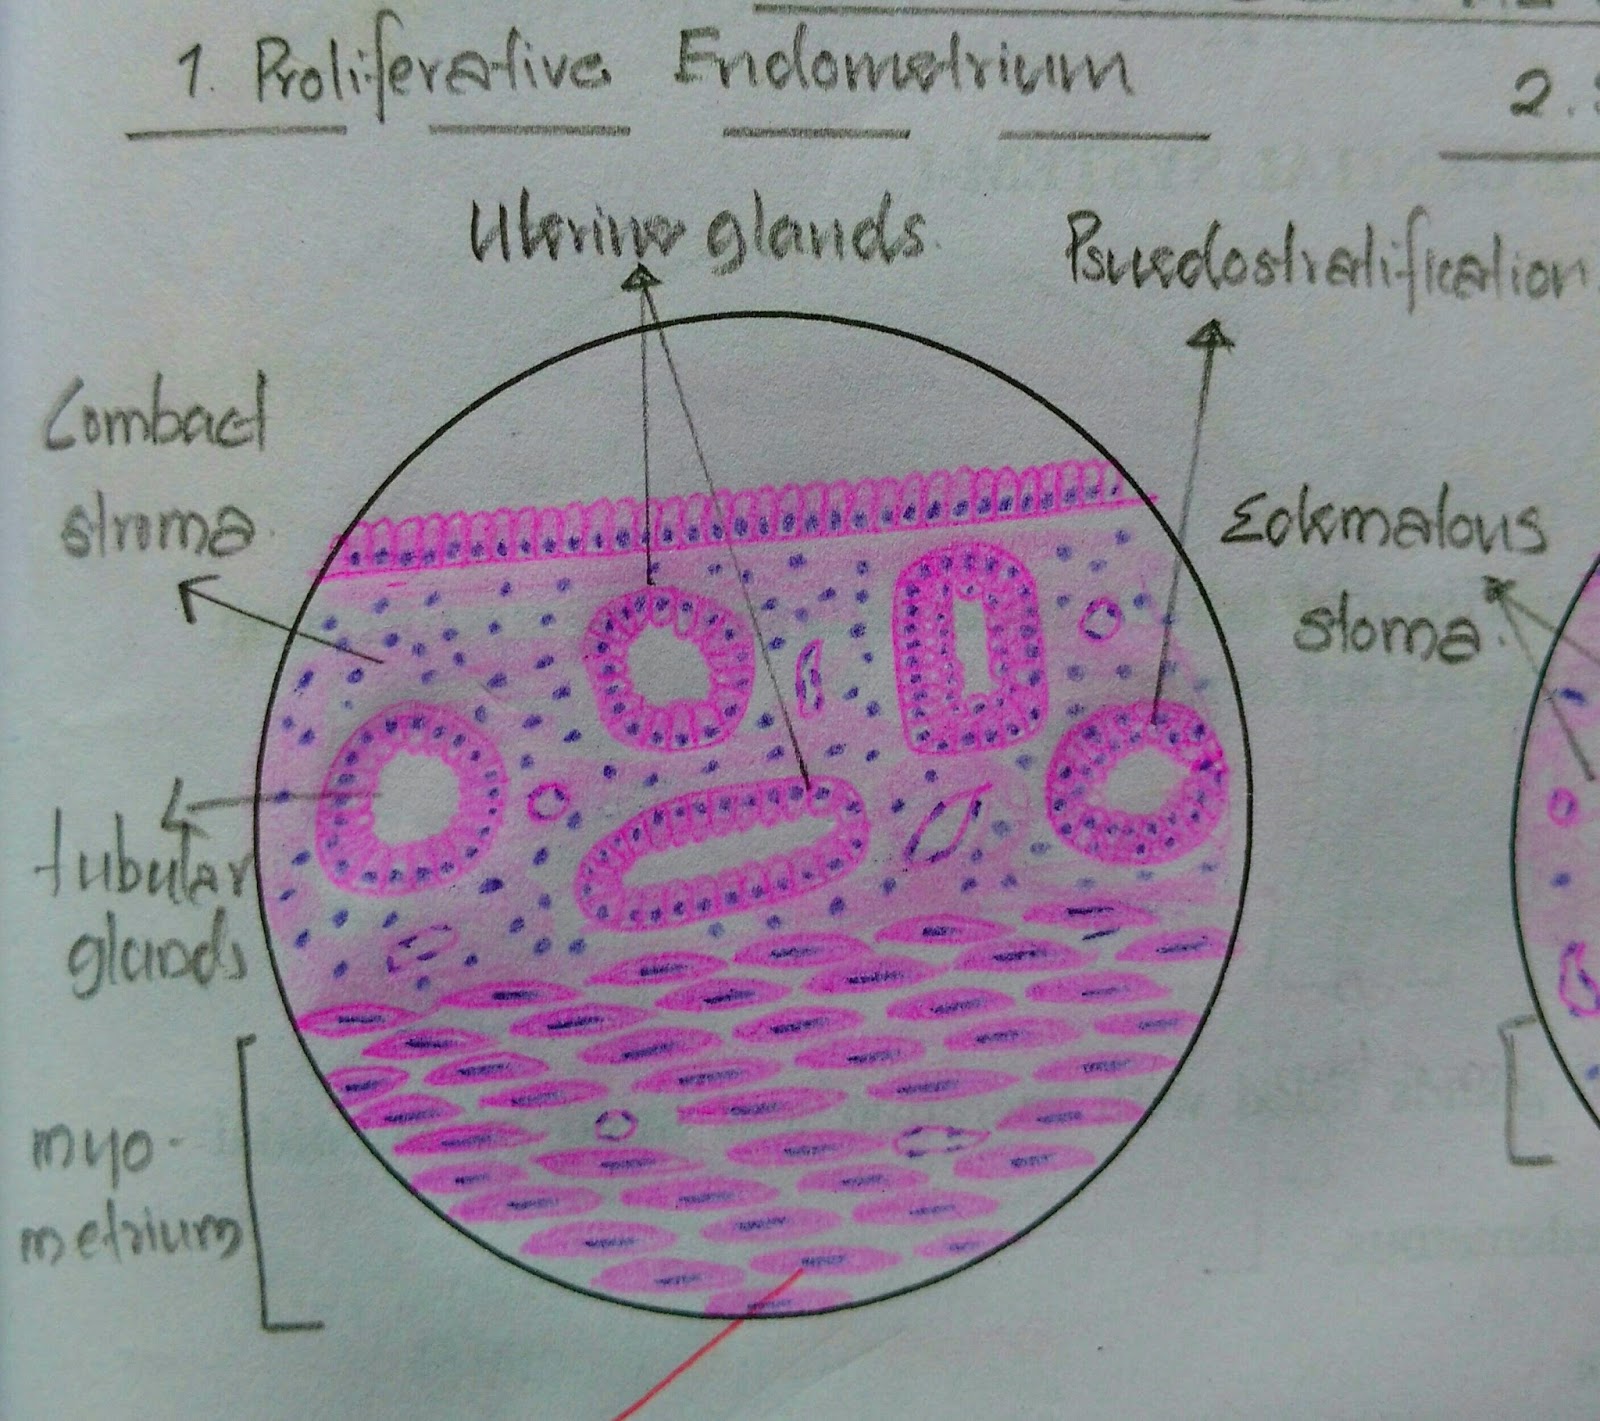 1. Proliferative Endometrium
2.
Uterine glands.
Psuedostratification
Combact
stroma.
Edematous
stoma.
tubular
glands
myo-
metrium